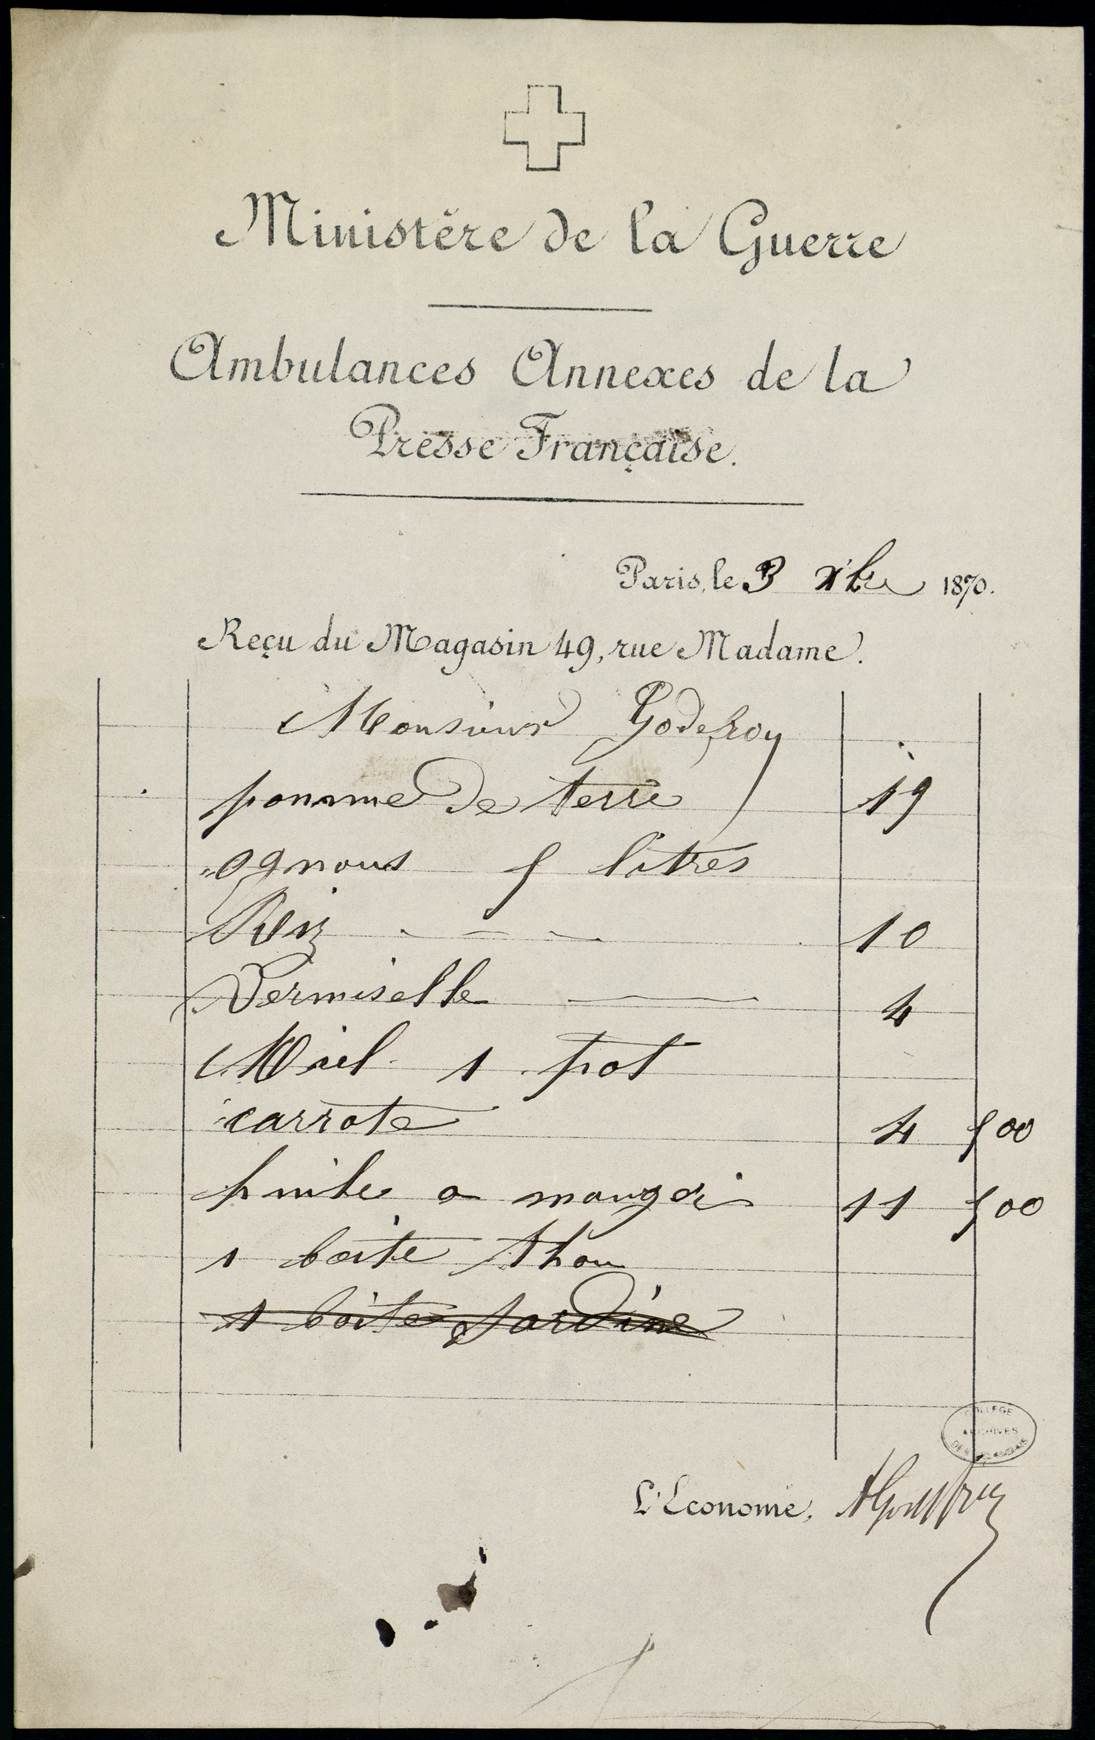 Ministère de la Guerre
Ambulances Annexes de la
Presse Française.
Paris, le 3 Xbre 1870.
Reçu du Magasin 49, rue Madame.
Monsieur Godefroy
pomme de terre 19
ognons 5 litres
Riz 10
Vermiselle 4
Miel 1 pot
carrote 4 500
huile a manger 11 500
1 boite thon
1 boite sardine
COLLEGE
ARCHIVES
L'Econome, AGodefroy